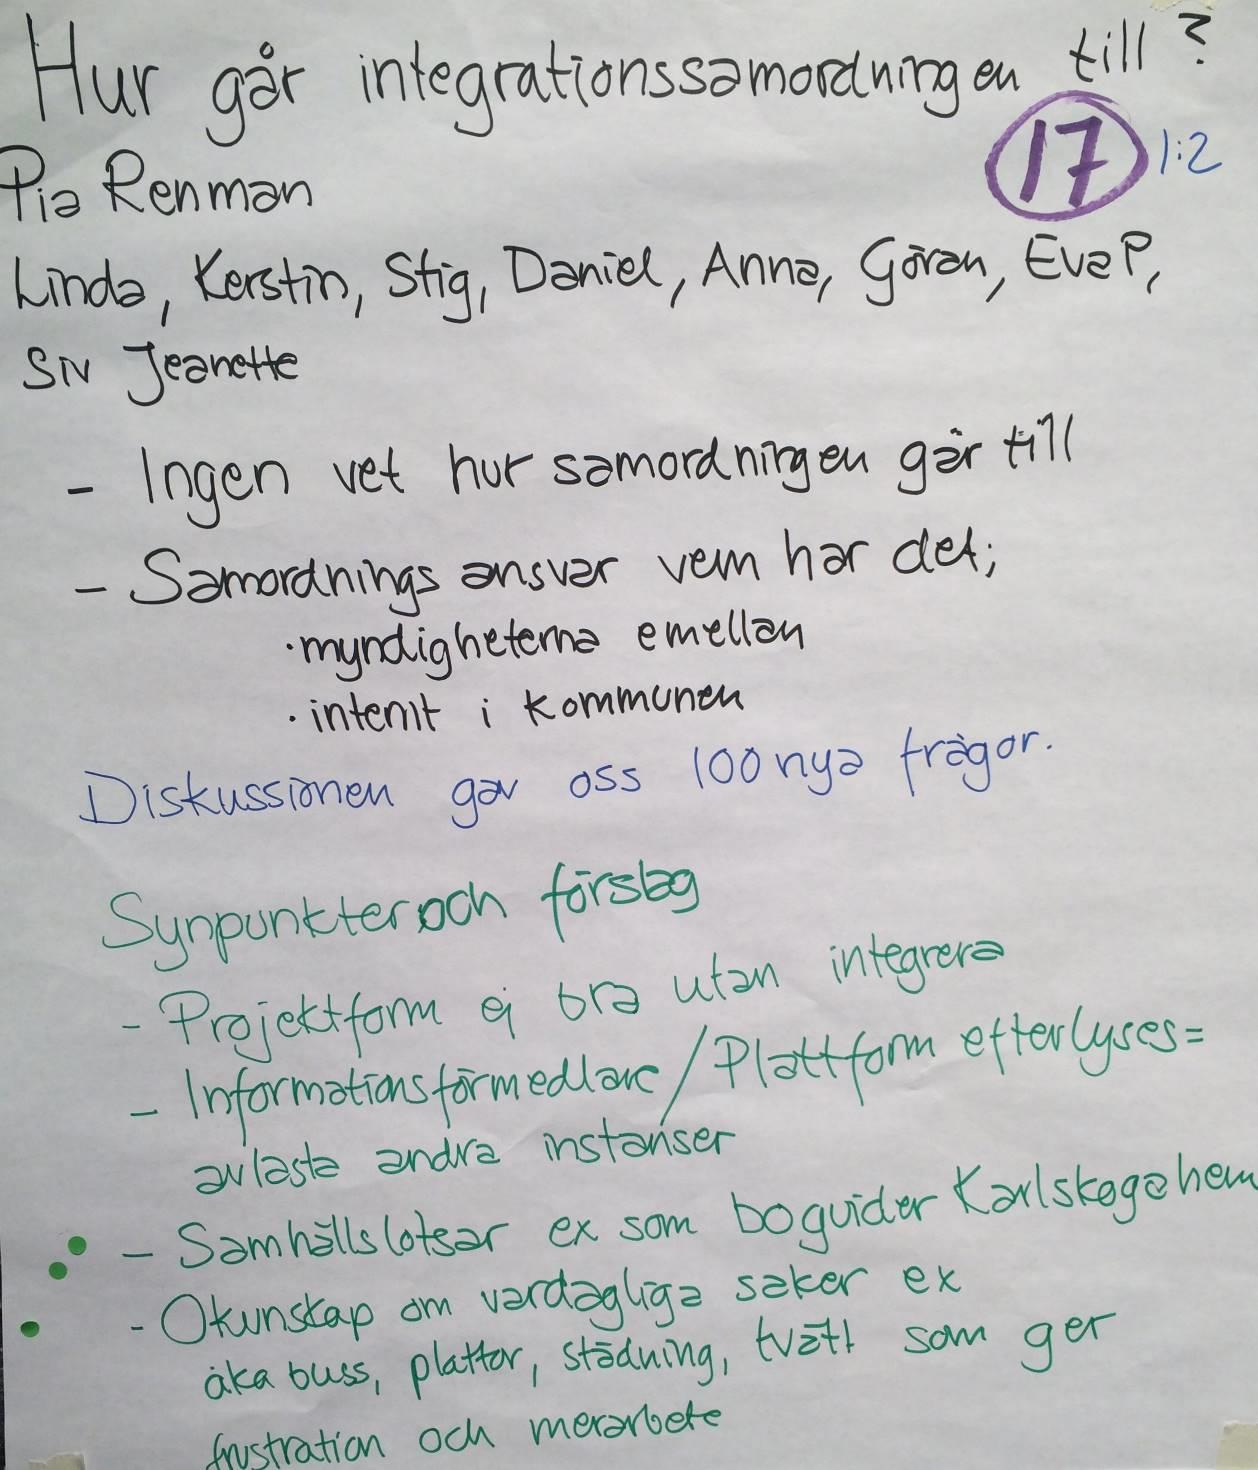 Hur går integrationssamordningen till?
17 1:2
Pia Renman
Linda, Kerstin, Stig, Daniel, Anna, Göran, Eva P,
Siv Jeanette
- Ingen vet hur samordningen går till
- Samordnings ansvar vem har det;
· myndigheterna emellan
· internt i kommunen
Diskussionen gav oss 100 nya frågor.
Synpunkter och förslag
- Projektform ej bra utan integrera
- Informationsförmedlare / Plattform efterlyses =
avlasta andra instanser
- Samhällslotsar ex som boguider Karlskogahem
- Okunskap om vardagliga saker ex
åka buss, plattor, städning, tvätt som ger
frustration och merarbete